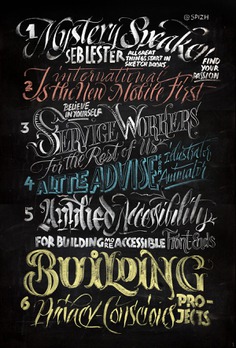 @SPIZH
1 Mystery Speaker
SEB LESTER
ALL GREAT THINGS START IN SKETCH BOOKS
FIND YOUR PASSION
2 International
Is the New Mobile First
BELIEVE IN YOURSELF
3 SERVICE WORKERS
For the Rest of Us
4 A LITTLE ADVISE
Illustrate
Animate
5 Applied Accessibility
FOR BUILDING
ACCESSIBLE Front-ends
BUILDING
6 Privacy-Conscious PRO-
JECTS